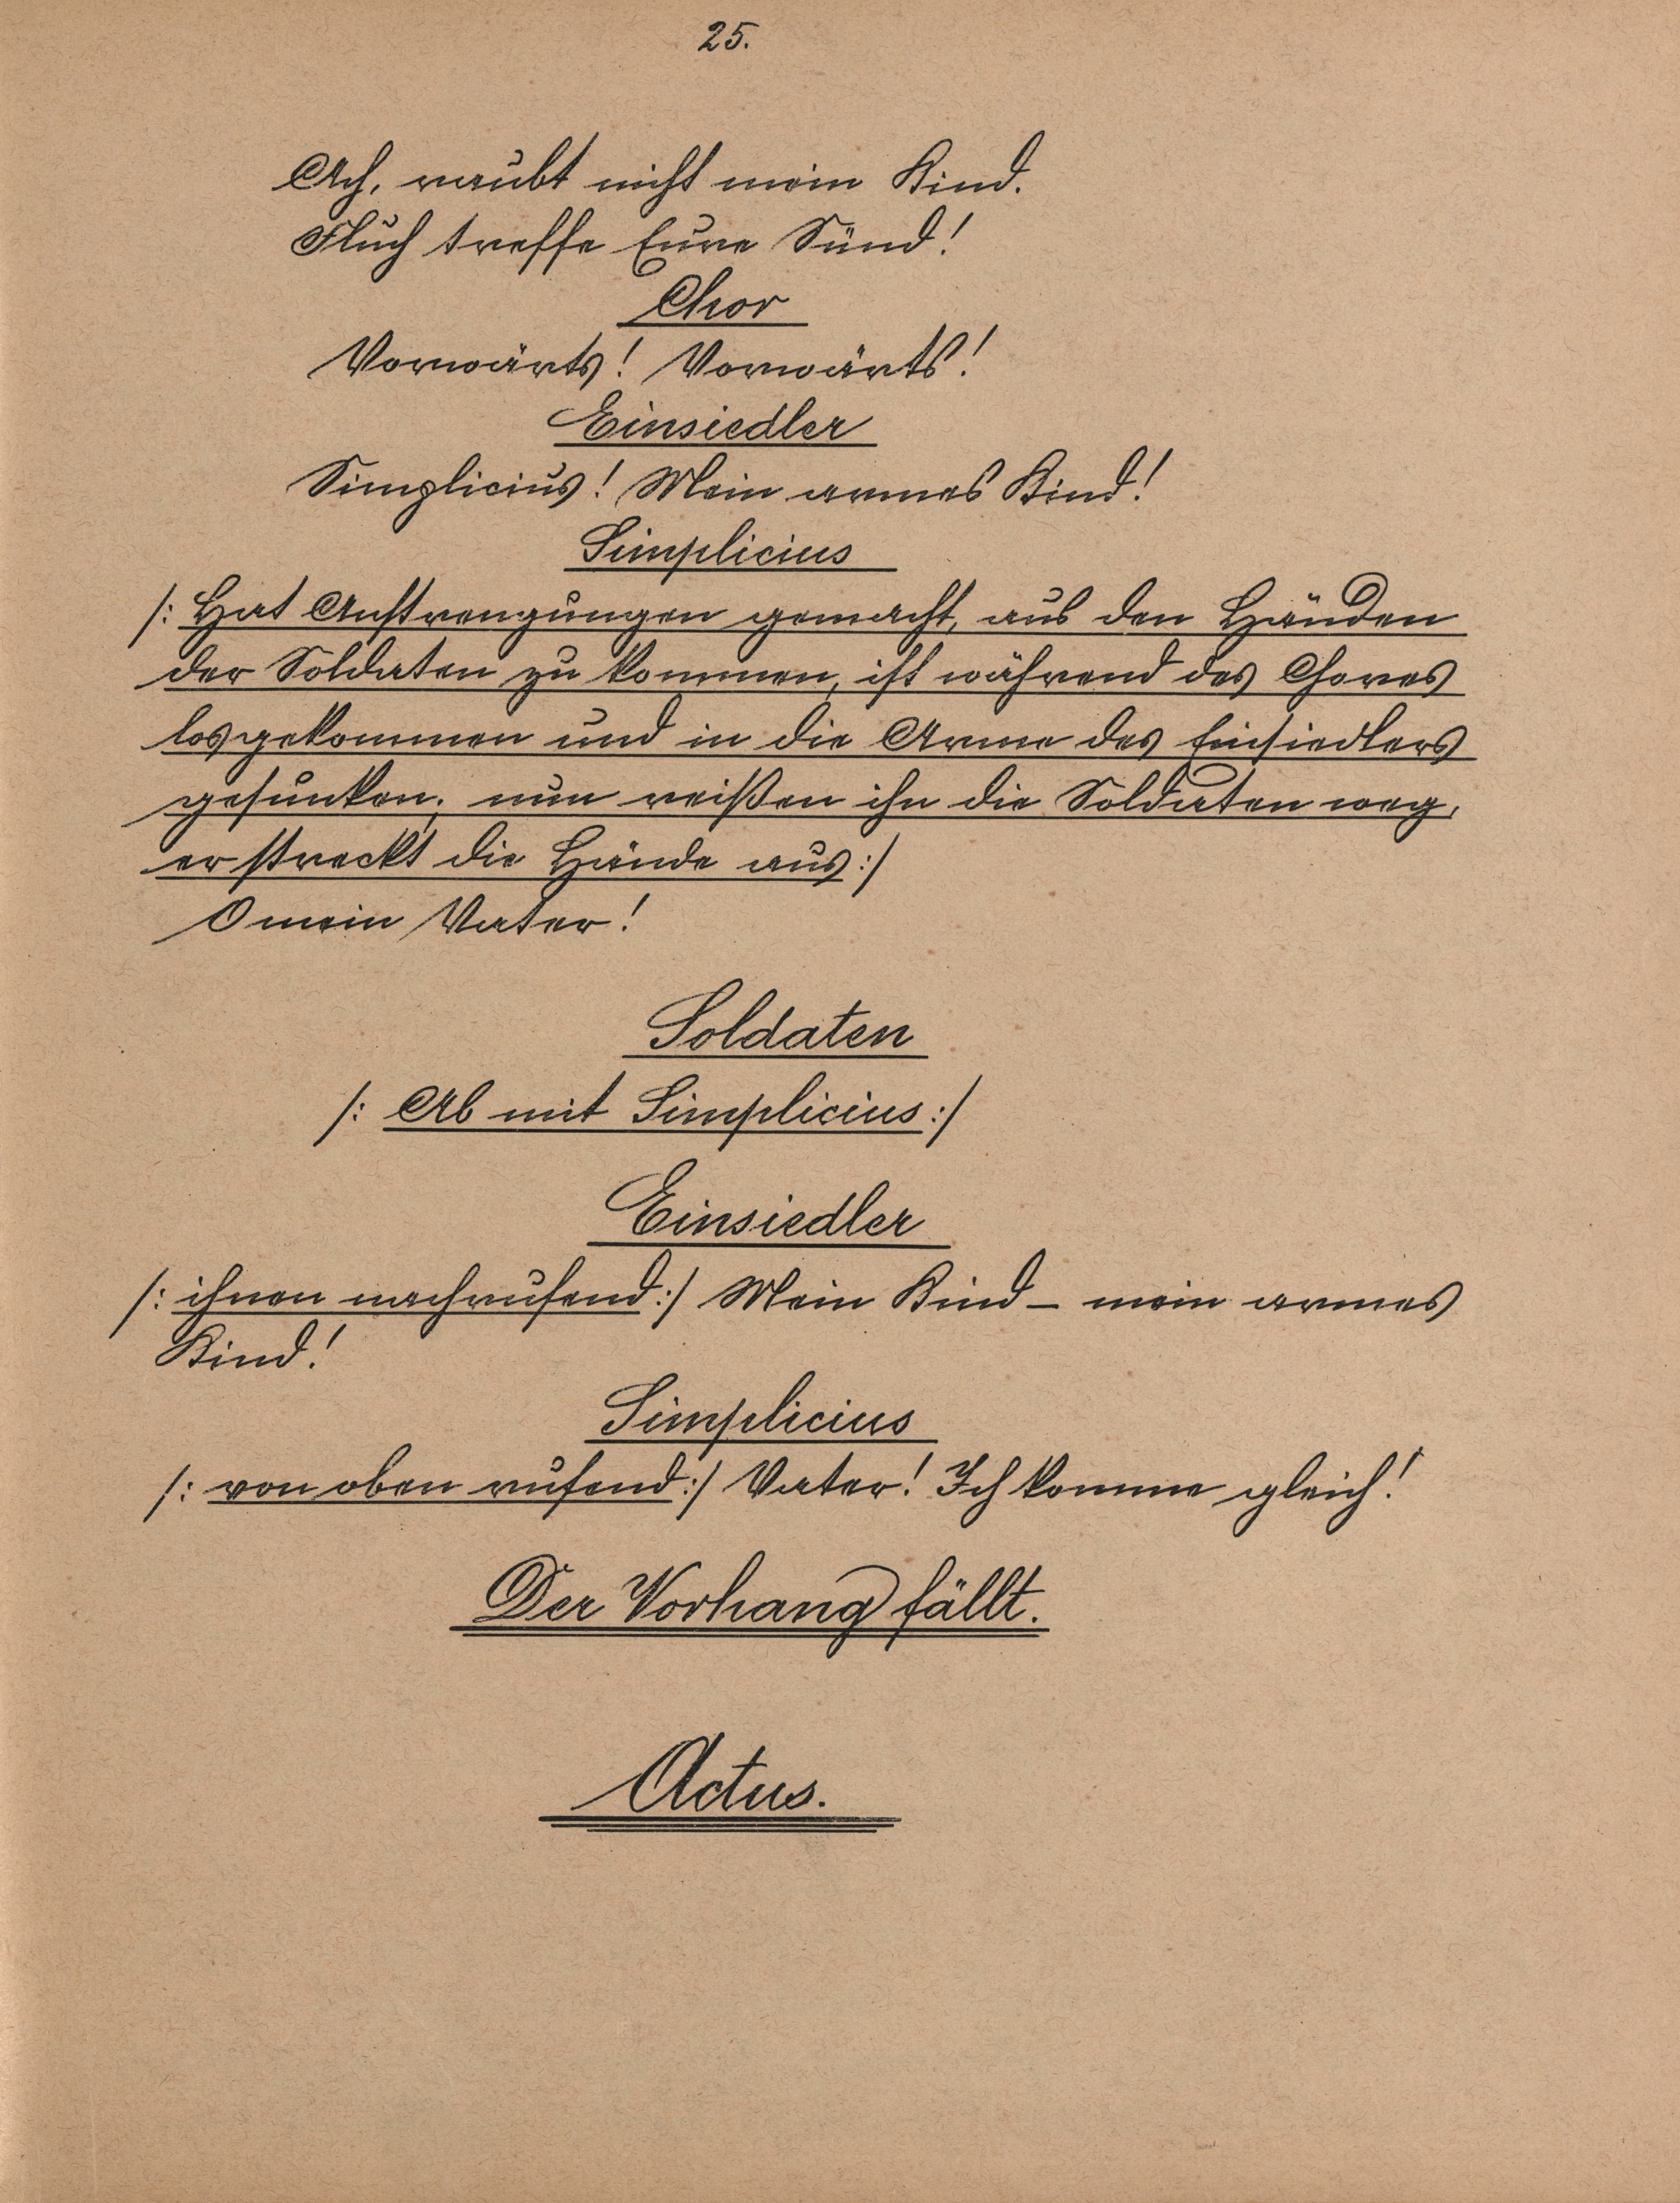 25.
Ach, raubt nicht mein Kind.
Fluch treffe Eure Sünd!
Chor
Vorwärts! Vorwärts!
Einsiedler
Simplicius! Mein armes Kind!
Simplicius
/: Hat Anstrengungen gemacht, aus den Händen
der Soldaten zu kommen, ist während des Chores
losgekommen und in die Arme des Einsiedlers
gesunken; nun reißen ihn die Soldaten weg,
er streckt die Hände aus :/
O mein Vater!
Soldaten
/: Ab mit Simplicius :/
Einsiedler
/: ihnen nachrufend :/ Mein Kind – mein armes
Kind!
Simplicius
/: von oben rufend :/ Vater! Ich komme gleich!
Der Vorhang fällt.
Actus.